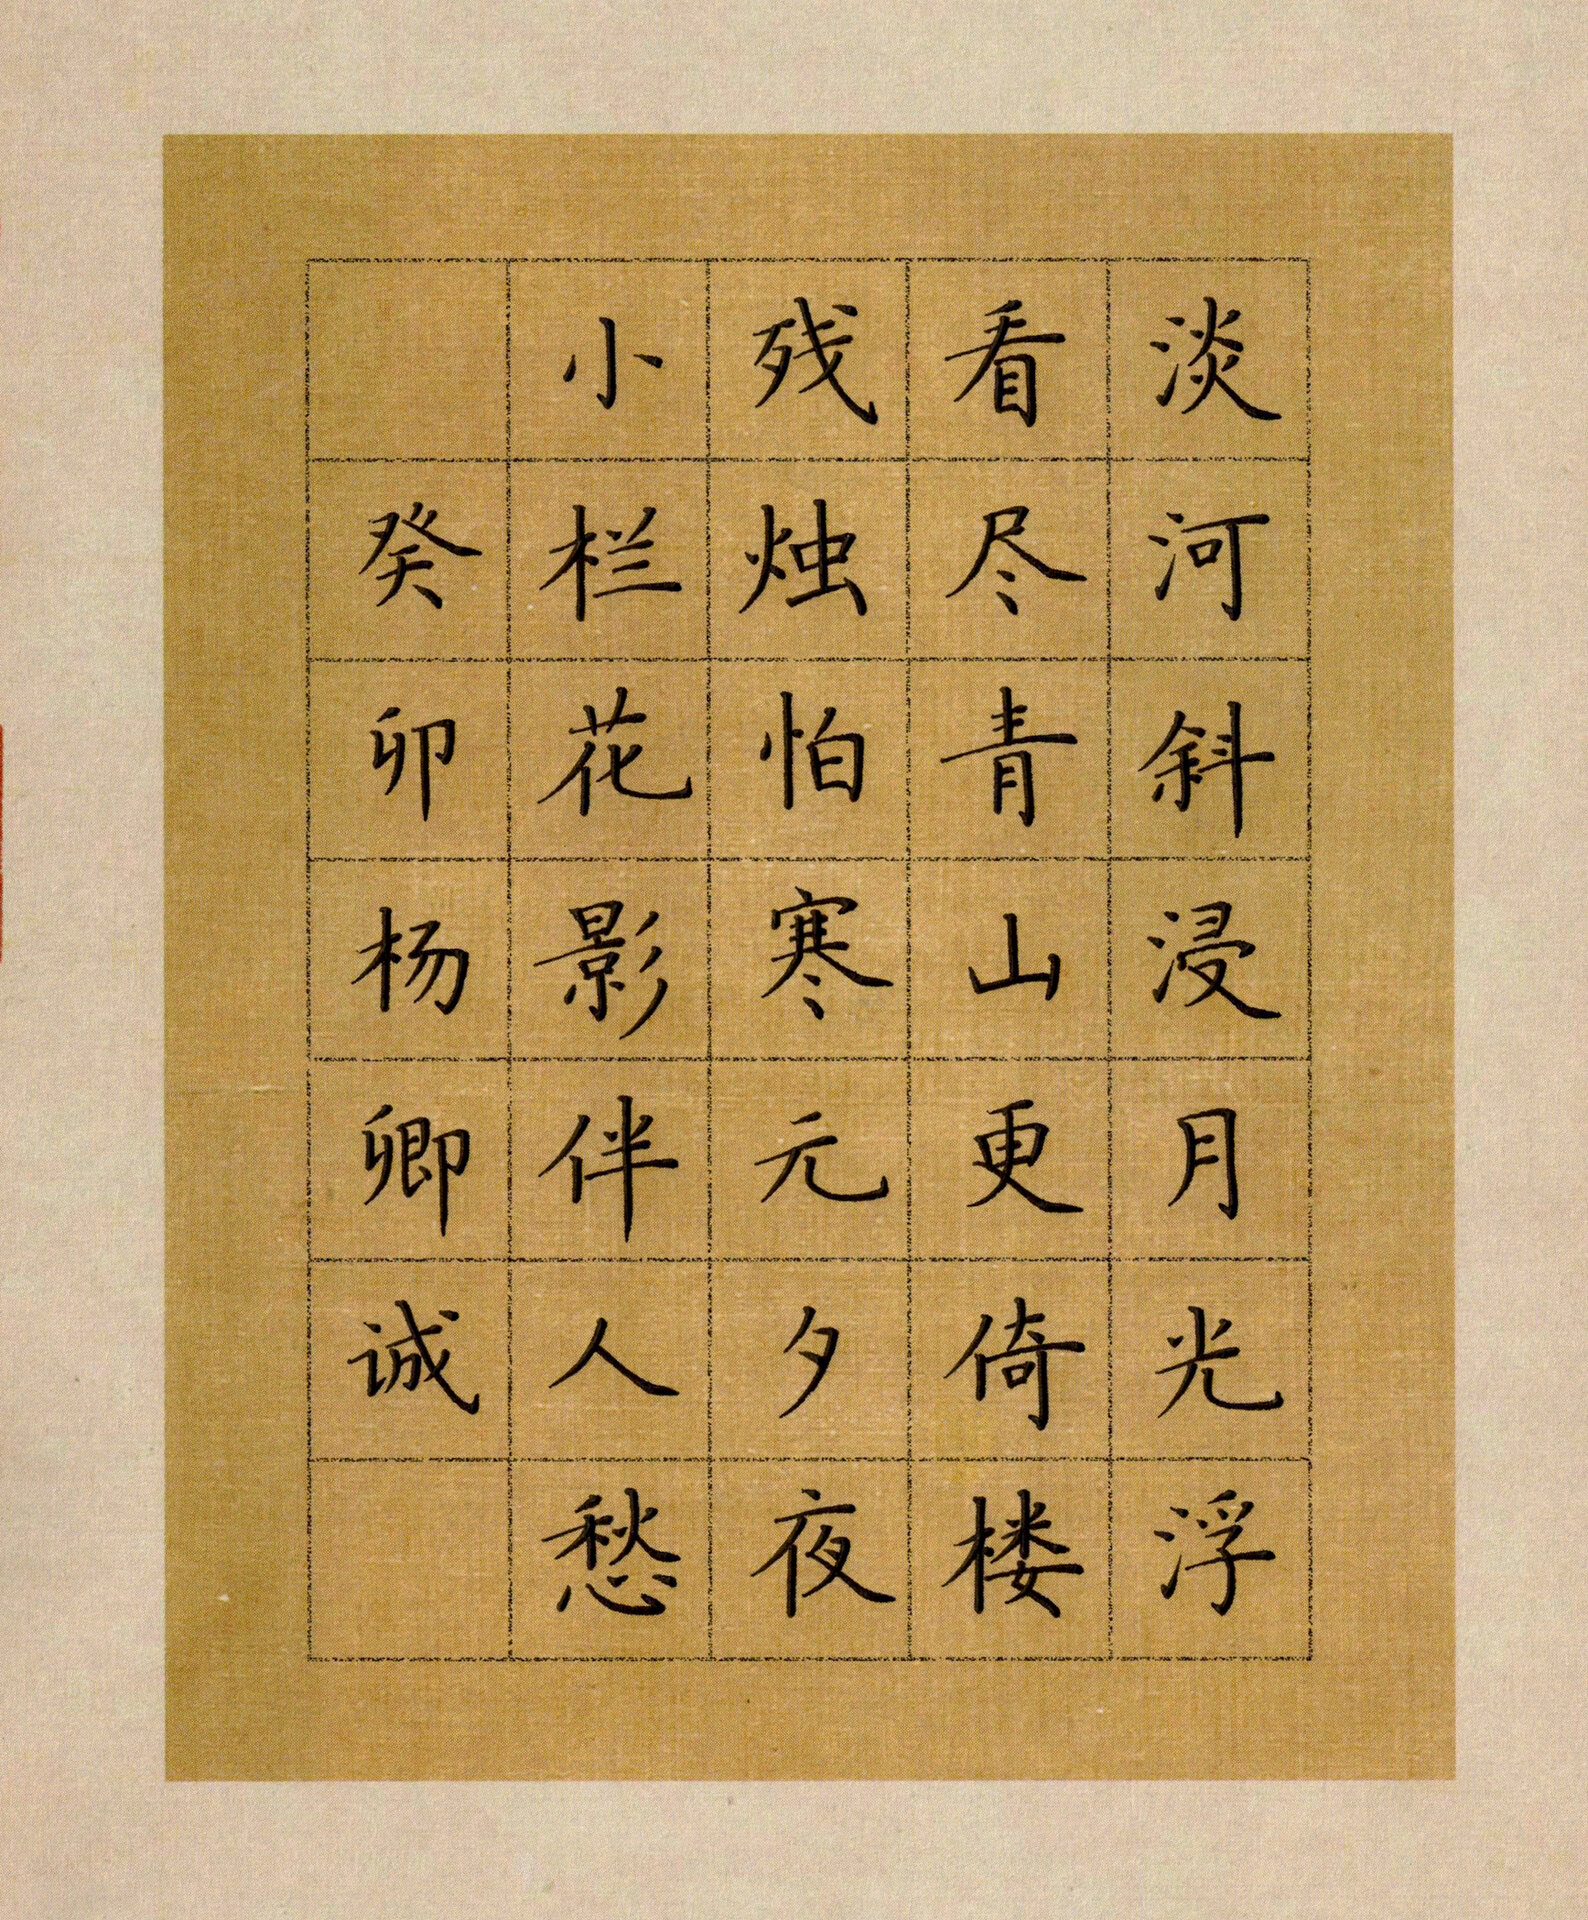 淡河斜浸月光浮
看尽青山更倚楼
残烛怕寒元夕夜
小栏花影伴人愁
癸卯杨卿诚